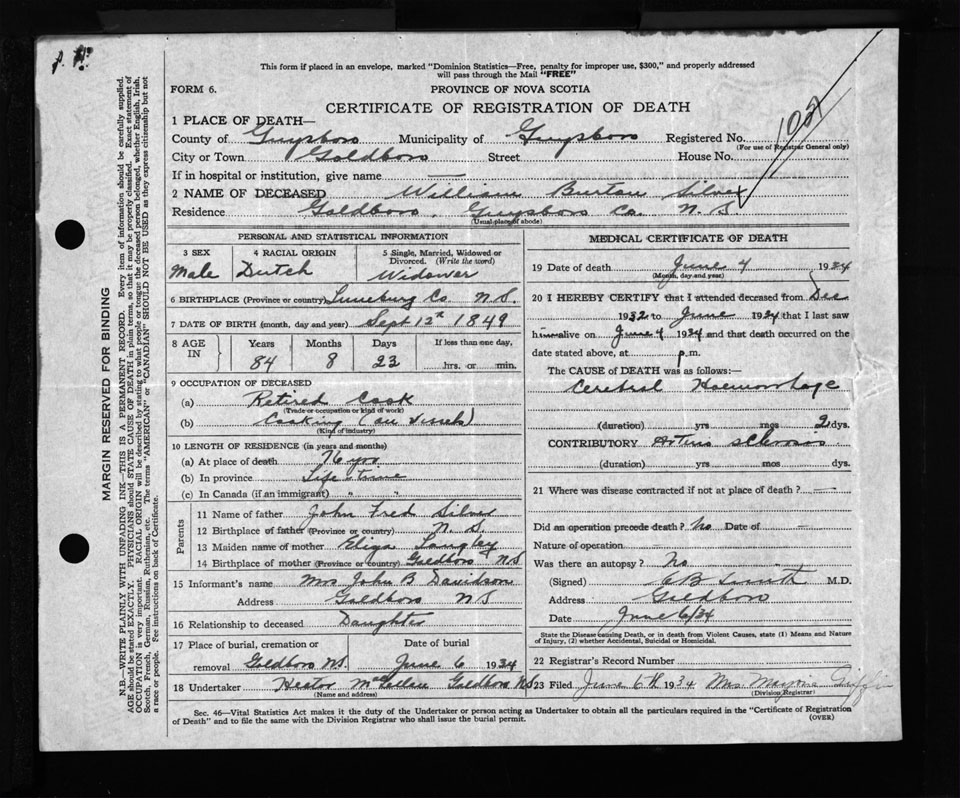 This form if placed in an envelope, marked "Dominion Statistics—Free, penalty for improper use, $300," and properly addressed
will pass through the Mail "FREE"
FORM 6.
PROVINCE OF NOVA SCOTIA
CERTIFICATE OF REGISTRATION OF DEATH
102
1 PLACE OF DEATH—
County of Guysboro Municipality of Guysboro Registered No.
(For use of Registrar General only)
City or Town Goldboro Street House No.
If in hospital or institution, give name —
2 NAME OF DECEASED William Burton Silver
Residence Goldboro, Guysboro Co. N.S.
(Usual place of abode)
PERSONAL AND STATISTICAL INFORMATION
3 SEX 4 RACIAL ORIGIN 5 Single, Married, Widowed or
Divorced. (Write the word)
Male Dutch Widower
6 BIRTHPLACE (Province or country) Luneburg Co. N.S.
7 DATE OF BIRTH (month, day and year) Sept 12th 1849
8 AGE IN Years Months Days If less than one day,
84 8 23 hrs. or min.
9 OCCUPATION OF DECEASED
(a) Retired Cook
(Trade or occupation or kind of work)
(b) Cooking (on vessels)
(Kind of industry)
10 LENGTH OF RESIDENCE (in years and months)
(a) At place of death 76 yrs
(b) In province Life time
(c) In Canada (if an immigrant) " "
Parents
11 Name of father John Fred Silver
12 Birthplace of father (Province or country) N.S.
13 Maiden name of mother Eliza Langley
14 Birthplace of mother (Province or country) Goldboro N.S
15 Informant's name Mrs John B Davidson
Address Goldboro N.S
16 Relationship to deceased Daughter
17 Place of burial, cremation or Date of burial
removal Goldboro N.S. June 6 1934
18 Undertaker Hector Goldboro N.S
(Name and address)
MEDICAL CERTIFICATE OF DEATH
19 Date of death June 4 1934
(Month, day and year)
20 I HEREBY CERTIFY that I attended deceased from Dec
1932 to June 1934 that I last saw
him alive on June 4 1934 and that death occurred on the
date stated above, at p.m.
The CAUSE of DEATH was as follows:—
Cerebral Haemorrhage
(duration) yrs mos 2 dys.
CONTRIBUTORY
(duration) yrs mos dys.
21 Where was disease contracted if not at place of death? —
Did an operation precede death? No Date of —
Nature of operation —
Was there an autopsy? No
(Signed) C B Smith M.D.
Address Goldboro
Date June 6/34
State the Disease causing Death, or in death from Violent Causes, state (1) Means and Nature
of Injury, (2) whether Accidental, Suicidal or Homicidal.
22 Registrar's Record Number
23 Filed June 6th 1934 Mrs
(Division Registrar)
Sec. 46—Vital Statistics Act makes it the duty of the Undertaker or person acting as Undertaker to obtain all the particulars required in the "Certificate of Registration
of Death" and to file the same with the Division Registrar who shall issue the burial permit.
(OVER)
MARGIN RESERVED FOR BINDING
N.B.—WRITE PLAINLY WITH UNFADING INK—THIS IS A PERMANENT RECORD. Every item of information should be carefully supplied.
AGE should be stated EXACTLY. PHYSICIANS should STATE CAUSE OF DEATH in plain terms, so that it may be properly classified. Exact statement of
OCCUPATION is very important. RACIAL ORIGIN will be described by stating to what people or tongue the deceased person belonged, whether English, Irish,
Scotch, French, German, Russian, Ruthenian, etc. The terms "AMERICAN" or "CANADIAN" SHOULD NOT BE USED as they express citizenship but not
a race or people. See instructions on back of Certificate.